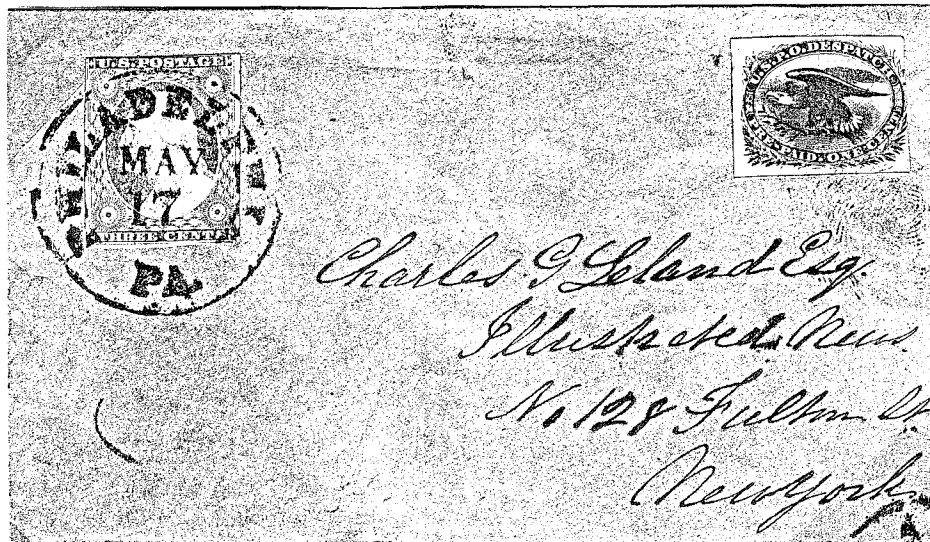 U.S. POSTAGE
PHILADELPHIA
MAY
17
PA.
THREE CENTS
U.S.P.O. DESPATCH
PRE-PAID ONE CENT
Charles G Leland Esq.
Illustrated News
No 128 Fulton St
New York